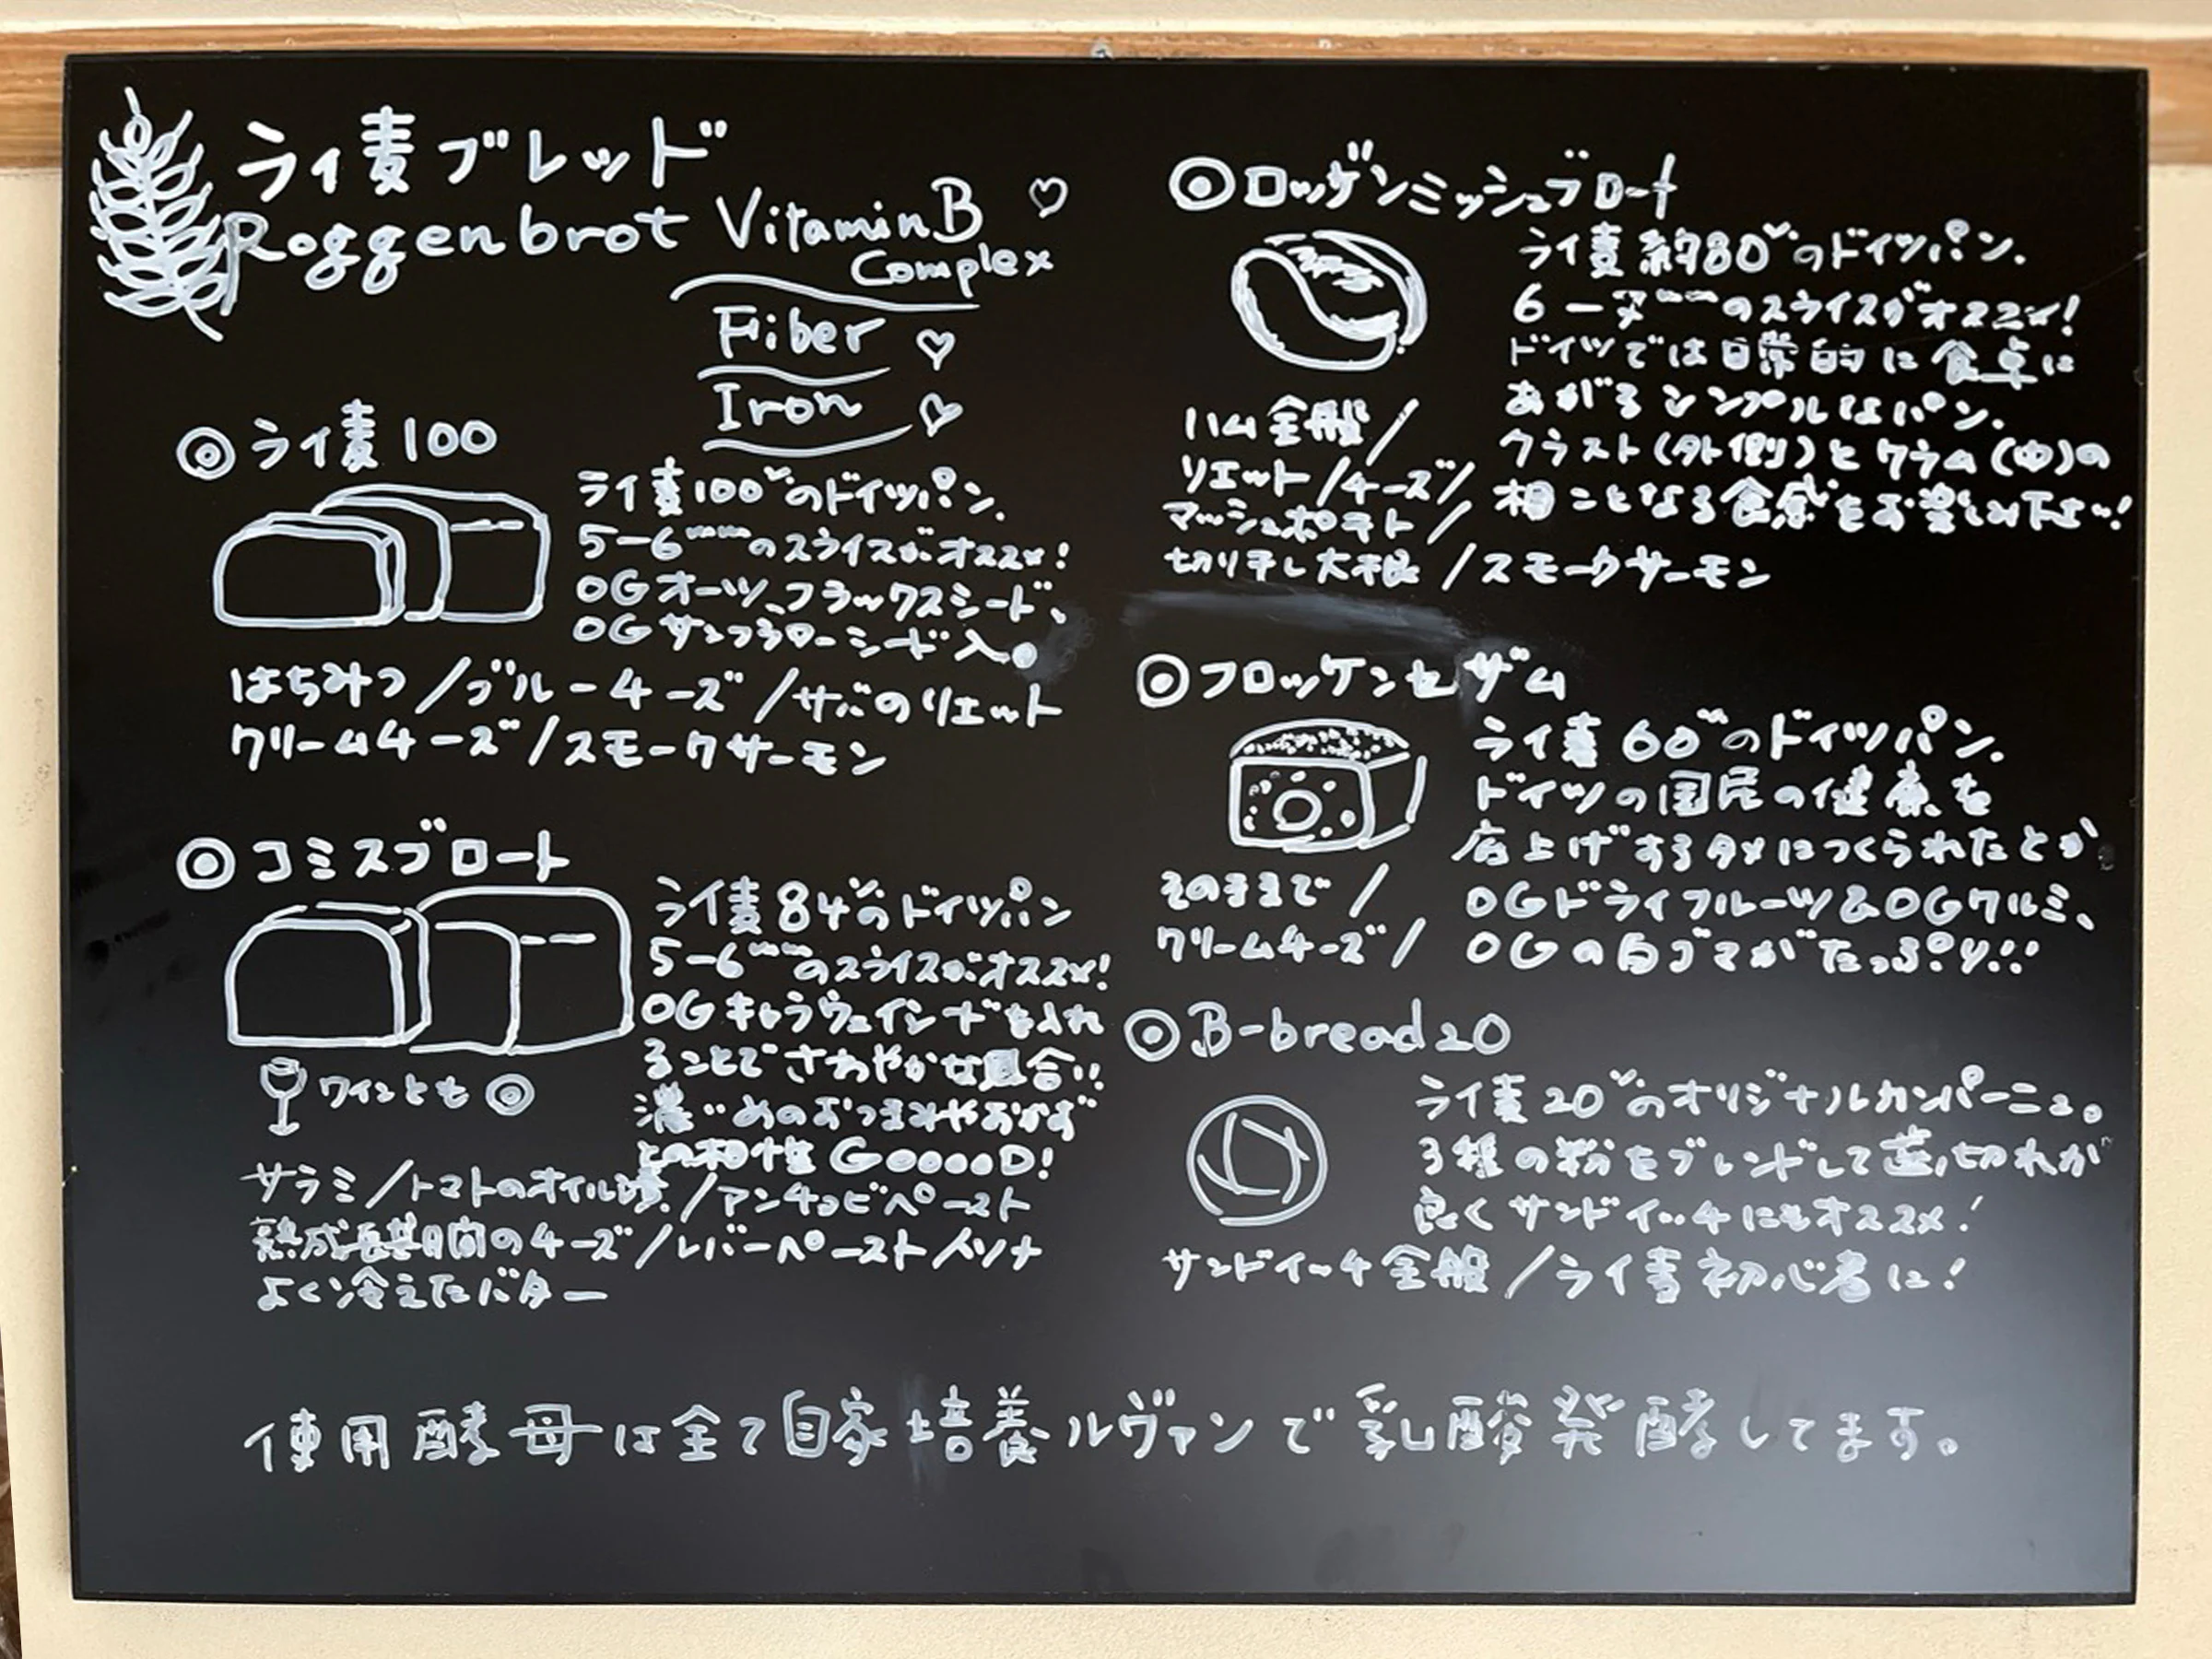 ライ麦ブレッド
Roggenbrot
VitaminB
Complex
Fiber
Iron
◎ライ麦100
ライ麦100%のドイツパン.
5-6mmのスライスがオススメ!
OGオーツ、フラックスシード、
OGサンフラワーシード入。
はちみつ/ブルーチーズ/サバのリエット
クリームチーズ/スモークサーモン
◎コミスブロート
ライ麦84%のドイツパン
5-6mmのスライスがオススメ!
OGキャラウェイシードを入れ
ることでさわやかな風合!!
濃いめのおつまみやおかず
との相性GooooD!
ワインとも◎
サラミ/トマトのオイル漬/アンチョビペースト
熟成長期間のチーズ/レバーペースト/ツナ
よく冷えたバター
◎ロッゲンミッシュブロート
ライ麦約80%のドイツパン.
6-7mmのスライスがオススメ!
ドイツでは日常的に食卓に
あがるシンプルなパン.
クラスト(外側)とクラム(中)の
相ことなる食感をお楽しみ下さい!
ハム全般/
リエット/チーズ/
マッシュポテト/
切り干し大根/スモークサーモン
◎フロッケンセザム
ライ麦60%のドイツパン.
ドイツの国民の健康を
底上げするタメにつくられたとか.
OGドライフルーツ&OGクルミ、
OGの白ゴマがたっぷり!!
そのままで/
クリームチーズ/
◎B-bread20
ライ麦20%のオリジナルカンパーニュ。
3種の粉をブレンドして歯切れが
良くサンドイッチにもオススメ!
サンドイッチ全般/ライ麦初心者に!
使用酵母は全て自家培養ルヴァンで乳酸発酵してます。